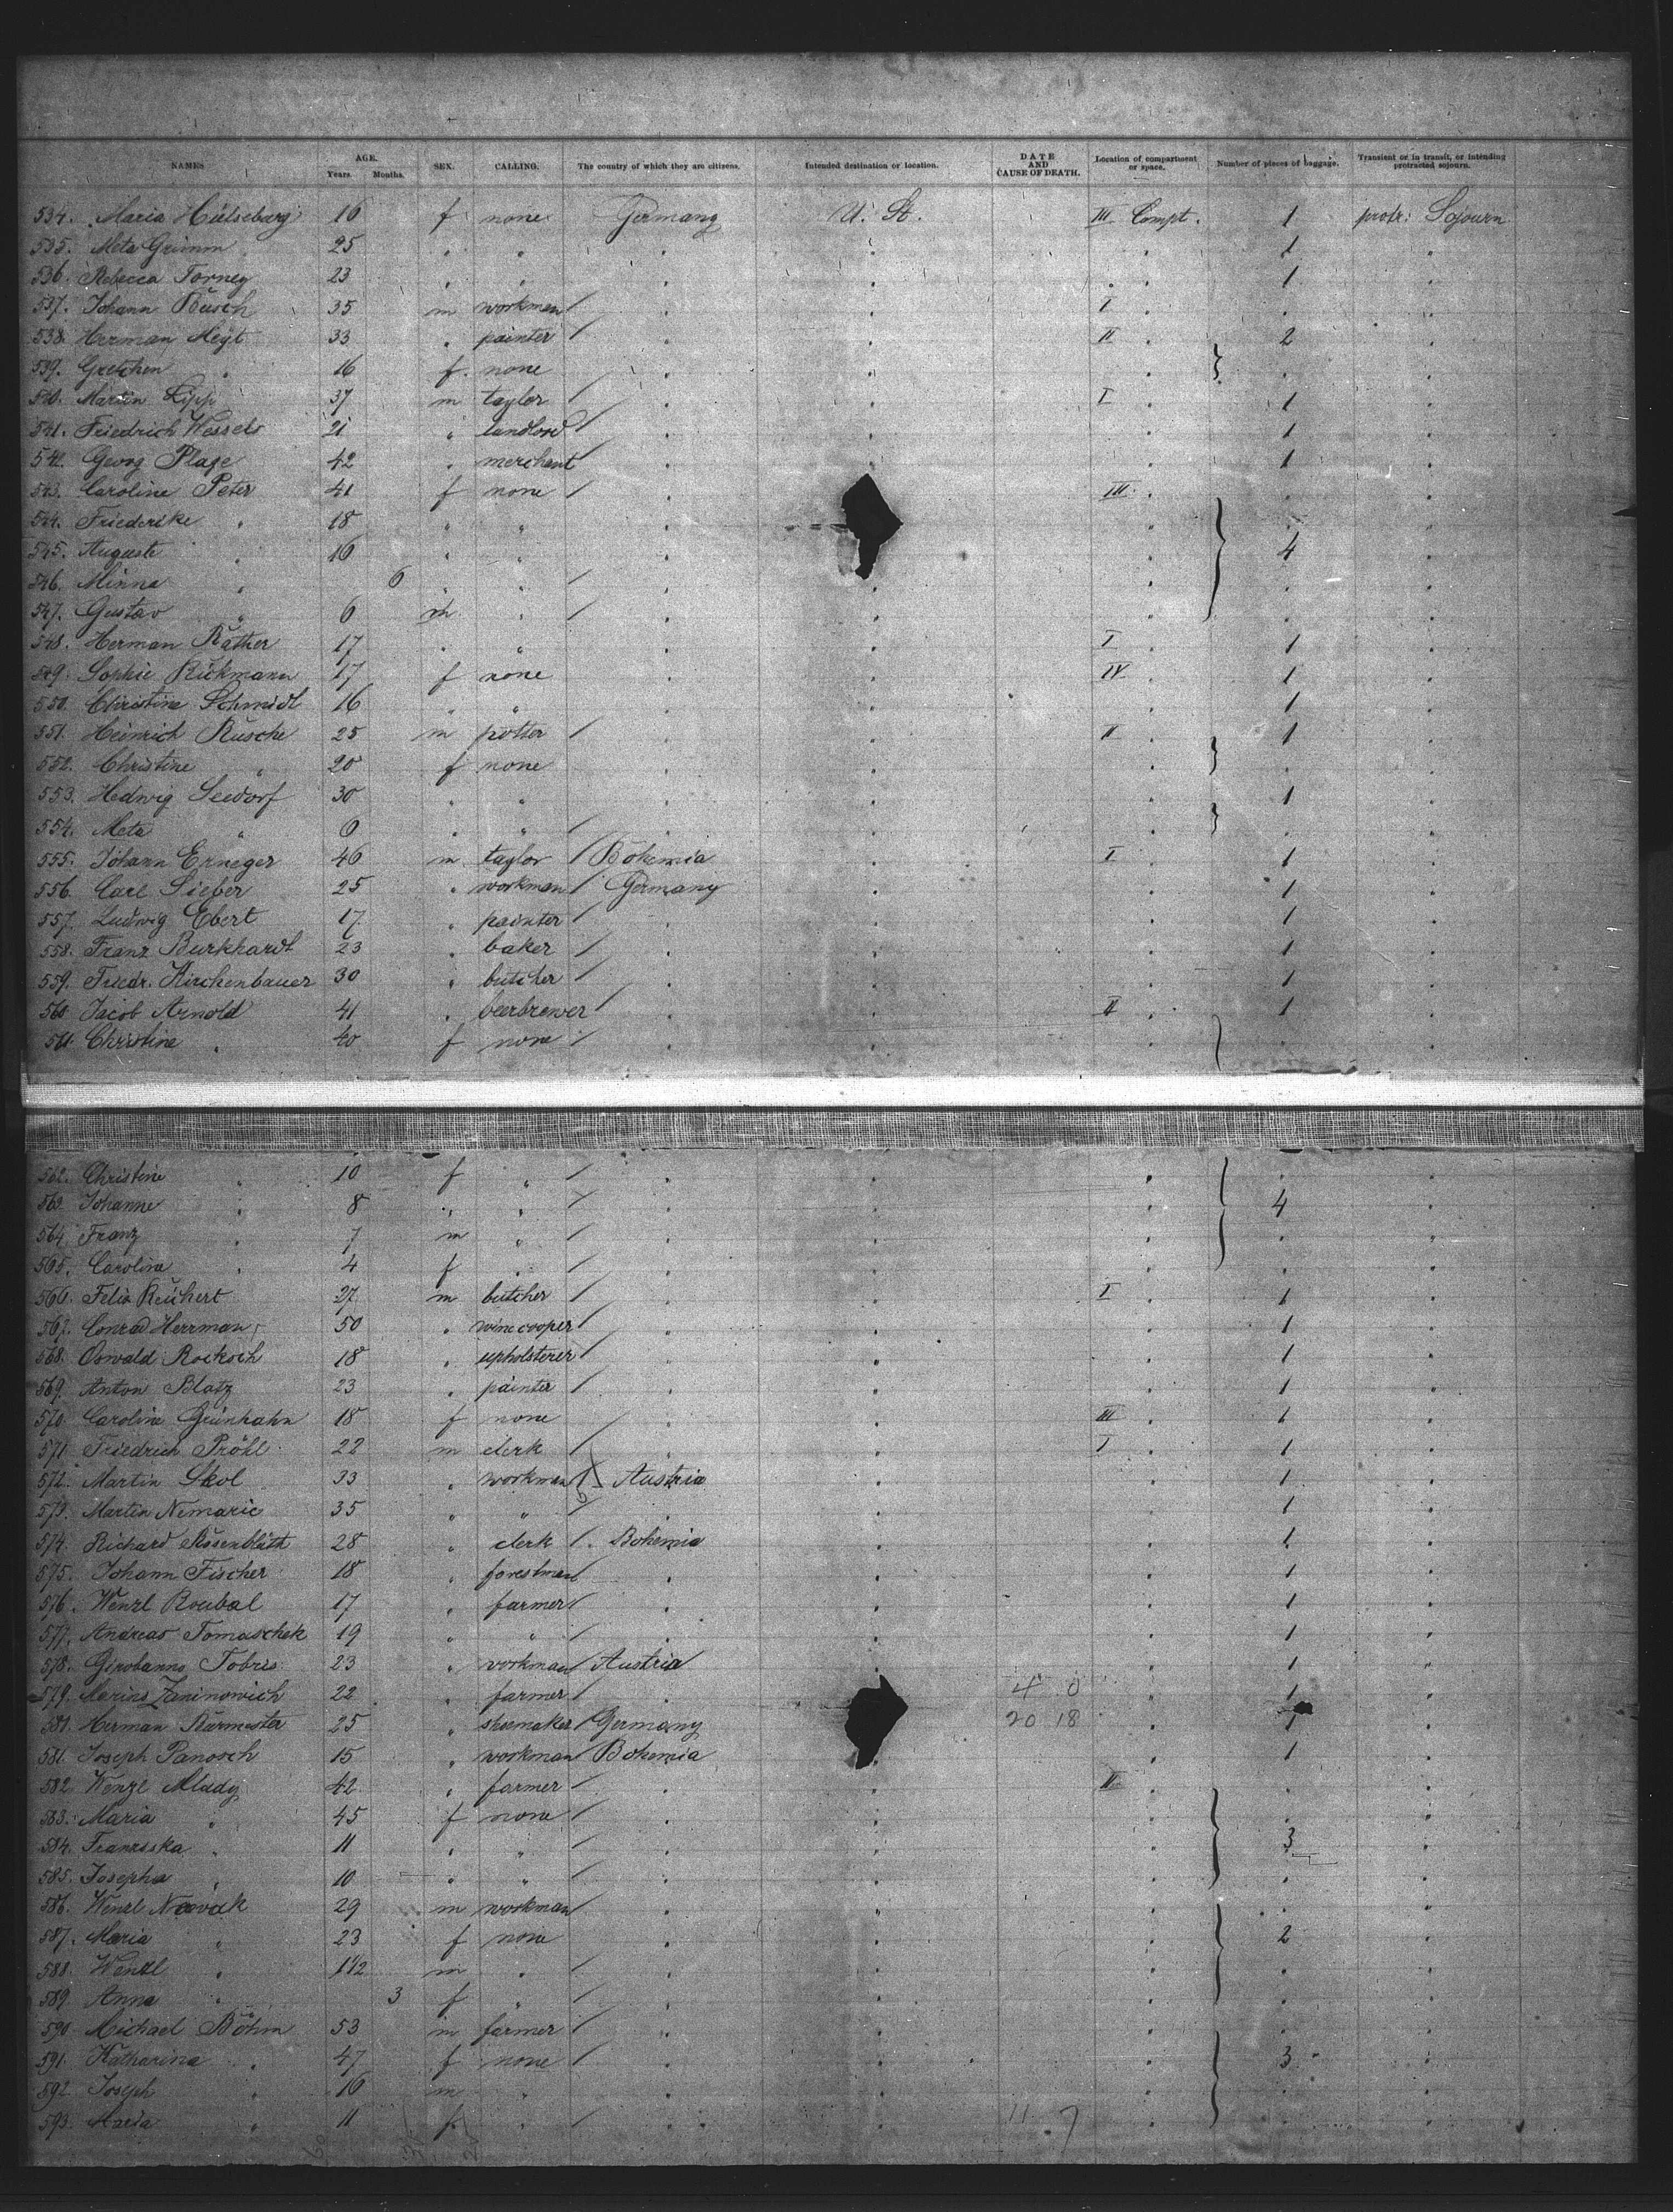 NAMES AGE. Years. Months. SEX. CALLING. The country of which they are citizens. Intended destination or location. DATE AND CAUSE OF DEATH. Location of compartment or space. Number of pieces of baggage. Transient or in transit, or intending protracted sojourn.
534. Maria Hülseburg 16 f none Germany U. St. III Compt. 1 protr: Sojourn
535. Meta Grimm 25 " " " " " 1 "
536. Rebecca Torney 23 " " " " " 1 "
537. Johann Busch 35 m workman / " " I " " "
538. Herman Heyt 33 " painter / " " II " 2 "
539. Gretchen " 16 f. none " " " } " "
540. Martin Lipp 37 m taylor / " " I " 1 "
541. Friedrich Wessels 21 " landlord / " " " 1 "
542. Georg Plage 42 " merchant / " " " 1 "
543. Caroline Peter 41 f none / " III " " "
544. Friederike " 18 " " " " " "
545. Auguste " 16 " " " " 4 "
546. Minna " 6 " " / " " " " "
547. Gustav " 6 m " / " " " " "
548. Herman Rather 17 " " " " I " 1 "
549. Sophie Rückmann 17 f none " " IV " 1 "
550. Christine Schmidt 16 " " " " " 1 "
551. Heinrich Rusche 25 m potter / " " II " 1 "
552. Christine " 20 f none " " " } " "
553. Hedwig Seedorf 30 " " " " " 1 "
554. Meta " 6 " " / " " " } " "
555. Johann Erneger 46 m taylor / Bohemia " I " 1 "
556. Carl Sieber 25 " workman / Germany " " 1 "
557. Ludwig Ebert 17 " painter / " " " 1 "
558. Franz Burkhardt 23 " baker / " " " 1 "
559. Friedr. Kirchenbauer 30 " butcher / " " " 1 "
560 Jacob Arnold 41 " beerbrewer / " " II " 1 "
561. Christine " 40 f none / " " " " "
562. Christine " 10 f " / " " " " "
563 Johanne " 8 " " / " " " 4 "
564 Franz " 7 m " / " " " " "
565. Caroline " 4 f " / " " " " "
566. Felix Reichert 27 m butcher / " " I " 1 "
567. Conrad Herrman 50 " winecooper / " " " 1 "
568. Oswald Rocksch 18 " upholsterer / " " " 1 "
569. Anton Blatz 23 " painter / " " " 1 "
570. Caroline Grünhahn 18 f none / " " III " 1 "
571. Friedrich Pröhl 22 m clerk / " " I " 1 "
572. Martin Skol 33 " workman / Austria " " 1 "
573. Martin Nemaric 35 " " / " " " 1 "
574. Richard Rosenblüth 28 " clerk / Bohemia " " 1 "
575. Johann Fischer 18 " forestman " " " 1 "
576. Wenzl Roubal 17 " farmer / " " " 1 "
577. Andreas Tomaschek 19 " " / " " " 1 "
578. Tobris 23 " workman / Austria " " 1 "
579. Marins Zaninowich 22 " farmer / " 4 0 " 1 "
Herman Burmester 25 " shoemaker / Germany 20 18 " 1 "
581. Joseph Panosch 15 " workman Bohemia " " 1 "
582. Wenzl Mlady 42 " farmer / " " II " " "
583. Maria " 45 f none / " " " " "
584. Franziska " 11 " " / " " " 3 "
585. Josepha " 10 " " / " " " " "
586. Wenzl Nowak 29 m workman / " " " " "
587. Maria " 23 f none " " " 2 "
588. Wenzl " 1 1/2 m " / " " " " "
589. Anna " 3 f " / " " " " "
590. Michael Böhm 53 m farmer / " " " " "
591. Katharina " 47 f none / " " " 3 "
592. Joseph " 16 m " " " " " "
593. Maria " 11 f " / " " 11 7 " " "